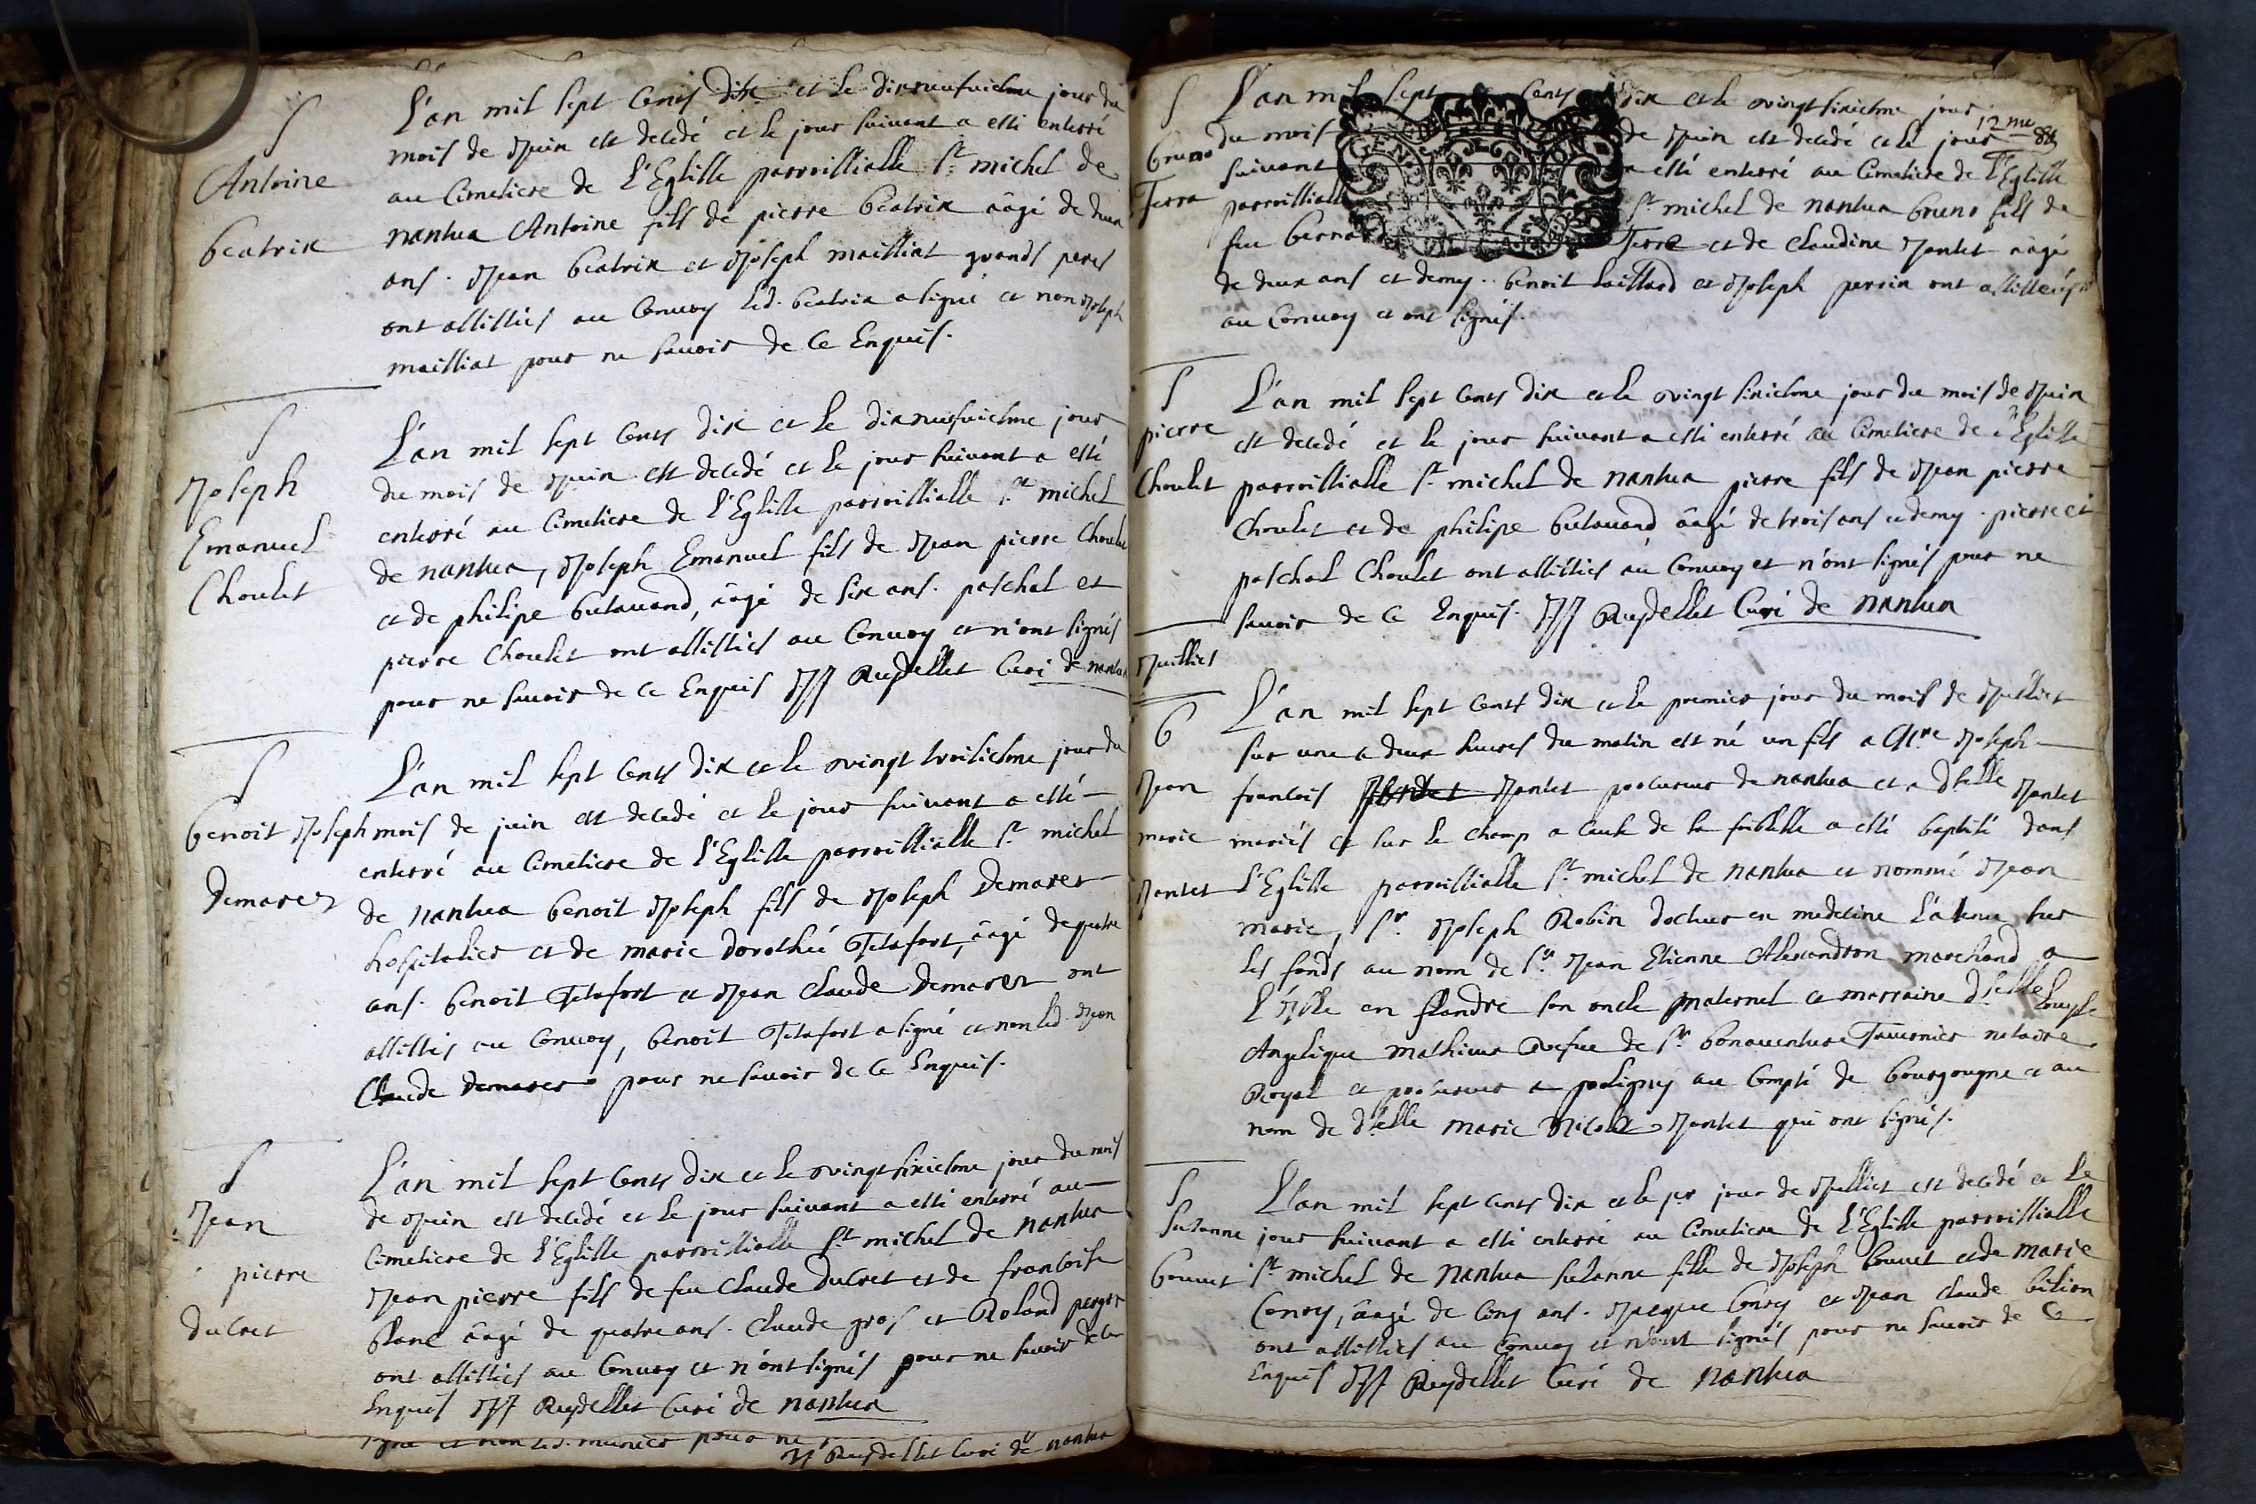 S
Antoine
beatrix
L'an mil sept cents dix et le dixneufuiesme jour du
mois de Juin est decedé et le jour suivant a esté enterré
au Cimetiere de l'Eglisse parroissialle St. michel de
nantua Antoine fils de pierre beatrix aagé de deux
ans. Jean beatrix et Joseph mailliat grands peres
ont assistés au Convoy led. beatrix a signé et non Joseph
mailliat pour ne sauoir de ce Enquis.
S
Joseph
Emanuel
Choulet
L'an mil sept cents dix et le dixneufuiesme jour
du mois de Juin est decedé et le jour suivant a esté
enterré au Cimetiere de l'Eglisse parroissialle St. michel
de nantua, Joseph Emanuel fils de Jean pierre Choulet
et de philipe butauand, aagé de six ans. paschal et
pierre Choulet ont assistés au Convoy et n'ont signés
pour ne sauoir de ce Enquis JJ Ruydellet Curé de nantua
S
benoit Joseph
Demarez
L'an mil sept cents dix et le vingt troisiesme jour du
mois de juin est decedé et le jour suivant a esté
enterré au Cimetiere de l'Eglisse parroissialle St. michel
de nantua benoit Joseph fils de Joseph Demarez
hospitalier et de marie dorothée Tetafort, aagé de quatre
ans. benoit Tetafort et Jean Claude Demarez ont
assistés au Convoy, benoit Tetafort a signé et non led. Jean
Claude Demarez pour ne sauoir de ce Enquis.
S
Jean
pierre
duCret
L'an mil sept cents dix et le vingt sixiesme jour du mois
de Juin est decedé et le jour suivant a esté enterré au
Cimetiere de l'Eglisse parroissialle St. michel de nantua
Jean pierre fils de feu Claude duCret et de francoise
blanc aagé de quatre ans. Claude gros et Roland
ont assistés au Convoy et n'ont signés pour ne sauoir de ce
Enquis JJ Ruydellet Curé de nantua
pour ne
JJ Ruydellet Curé de nantua
12me
S
bruno
Terra
L'an mil sept cents dix et le vingt sixiesme jour
du mois de Juin est decedé et le jour
suivant a esté enterré au Cimetiere de l'Eglisse
parroissialle St. michel de nantua bruno fils de
feu bernard Terra et de Claudine Jantet aagé
de deux ans et demy. benoit baillard et Joseph perrin ont assistés
au Convoy et ont signés.
GEN
S
pierre
Choulet
L'an mil sept cents dix et le vingt sixiesme jour du mois de Juin
est decedé et le jour suivant a esté enterré au Cimetiere de l'Eglisse
parroissialle St. michel de nantua pierre fils de Jean pierre
Choulet et de philipe butauand aagé de trois ans et demy. pierre et
paschal Choulet ont assistés au Convoy et n'ont signés pour ne
sauoir de ce Enquis. JJ Ruydellet Curé de nantua
Juilliet
B
Jean
marie
Jantet
L'an mil sept cents dix et le premier jour du mois de Juilliet
sur une a deux heures du matin est né un fils a Me Joseph
francois Jantet procureur de nantua et a Delle Jantet
mariés et sur le champ a cause de sa foiblesse a esté baptisé dans
l'Eglisse parroissialle St. michel de nantua et nommé Jean
marie, Sr. Joseph Robin docteur en medecine l'a tenu sur
les fonds au nom de Sr. Jean Etienne Alexandron marchand a
l'Isle en flandre son oncle maternel et marraine Delle Louyse
Angelique mathieux Vefue de Sr. bonauenture Tauernier notaire
Royal et procureur a poligny au Compté de bourgougne et au
nom de Delle marie Nicole Jantet qui ont signés.
S
Suzanne
bouuet
L'an mil sept cents dix et le pr jour de Juilliet est decedé et le
jour suivant a esté enterré au Cimetiere de l'Eglisse parroissialle
St. michel de nantua suzanne fille de Joseph bouuet et de marie
Convy, aagé de cinq ans. Jacque Convy et Jean Claude bilion
ont assistés au Convoy et n'ont signés pour ne sauoir de ce
Enquis JJ Ruydellet Curé de nantua